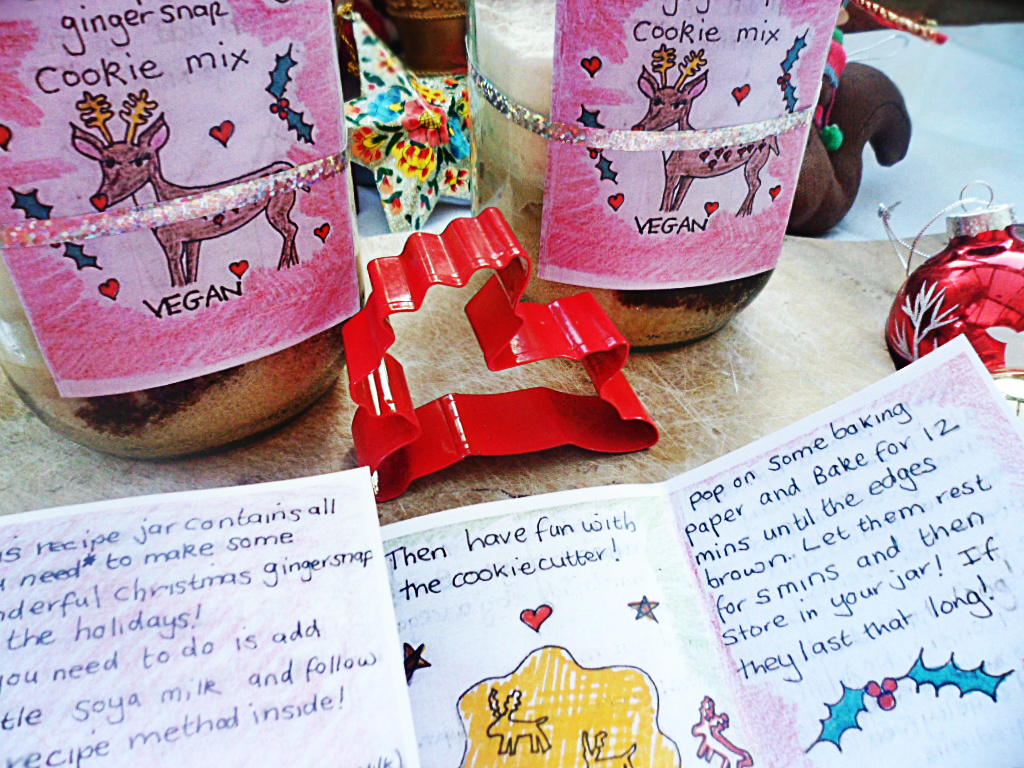 gingersnap
Cookie mix
VEGAN
Cookie mix
VEGAN
recipe jar contains all
need* to make some
Christmas gingersnap
the holidays!
you need to do is add
soya milk and follow
recipe method inside!
Then have fun with
the cookie cutter!
pop on some baking
paper and Bake for 12
mins until the edges
brown. Let them rest
for 5 mins and then
store in your jar! If
they last that long!